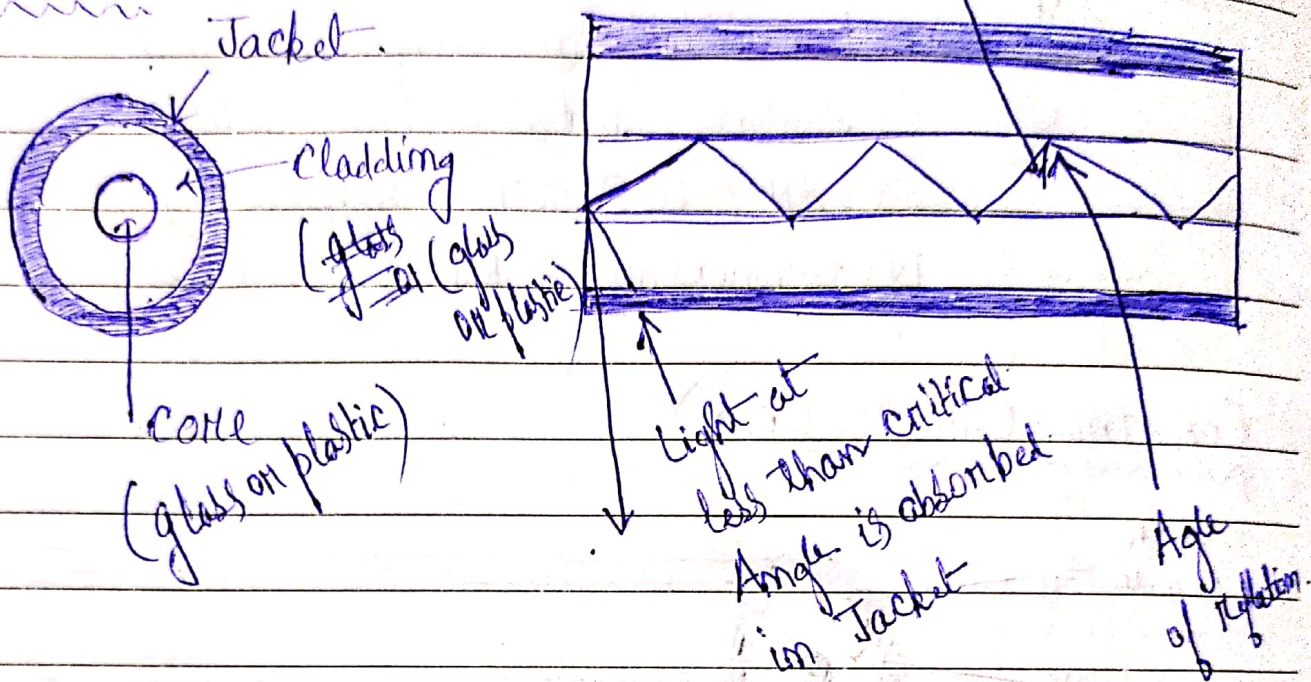 Jacket.
Cladding
(glass
or (glass
or plastic)
core
(glass or plastic)
Light at
less than critical
Angle is absorbed
in Jacket
Agle
of